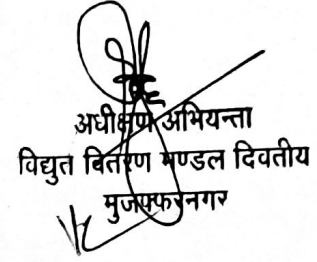 अधीक्षण अभियन्ता
विद्युत बितरण मण्डल दिवतीय
मुजफ्फरनगर